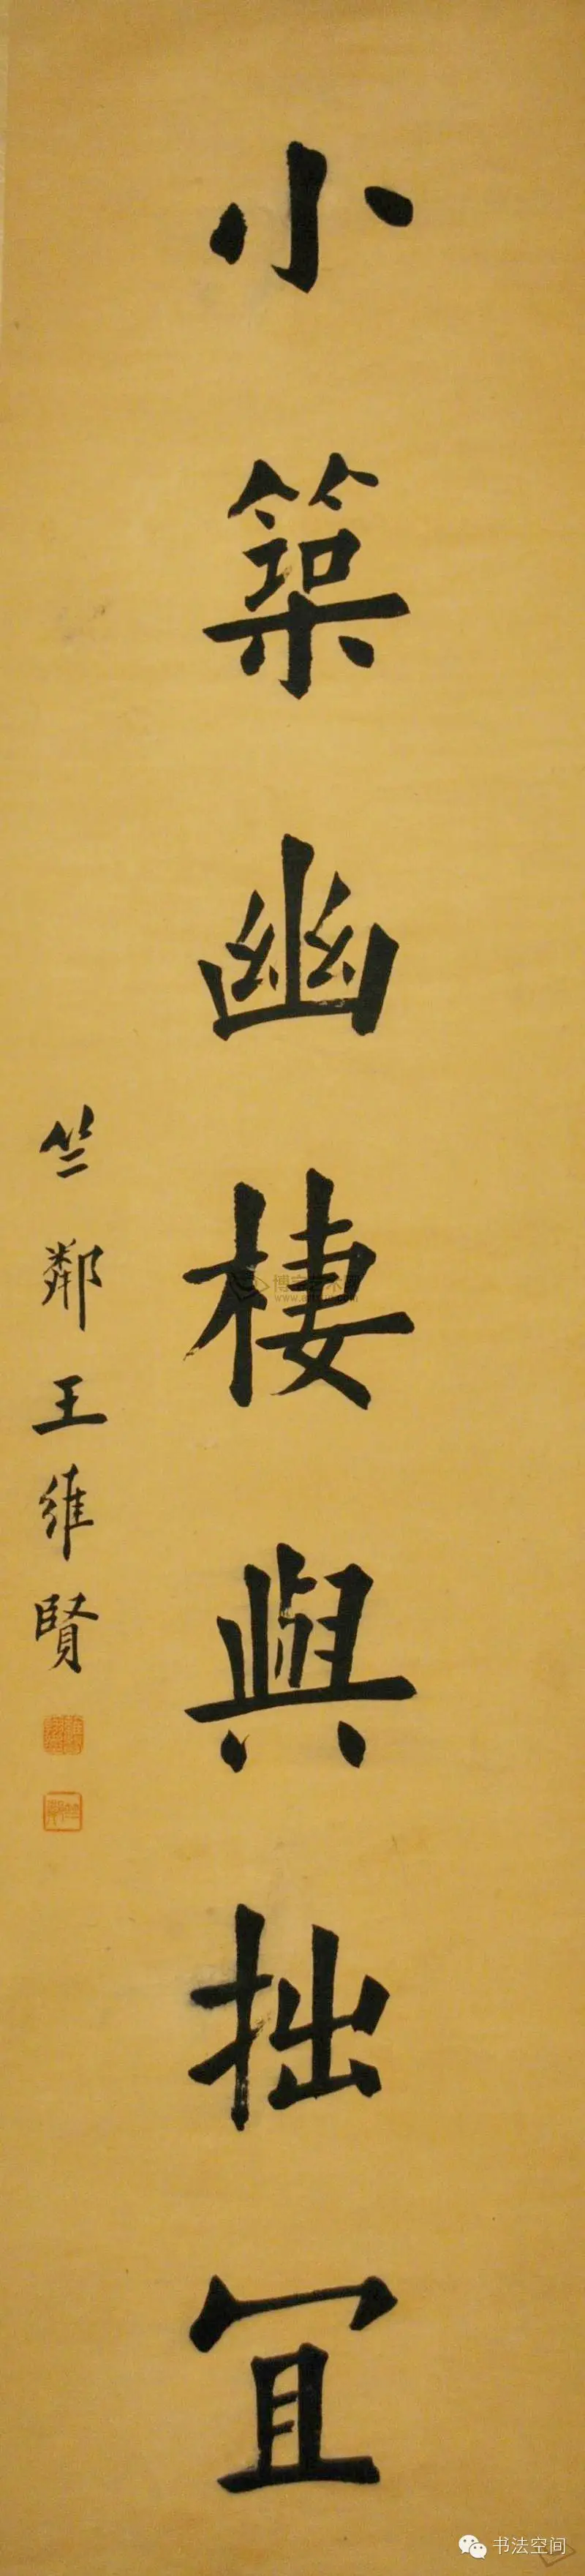 小築幽棲與拙冝
竺鄰王維賢
书法空间